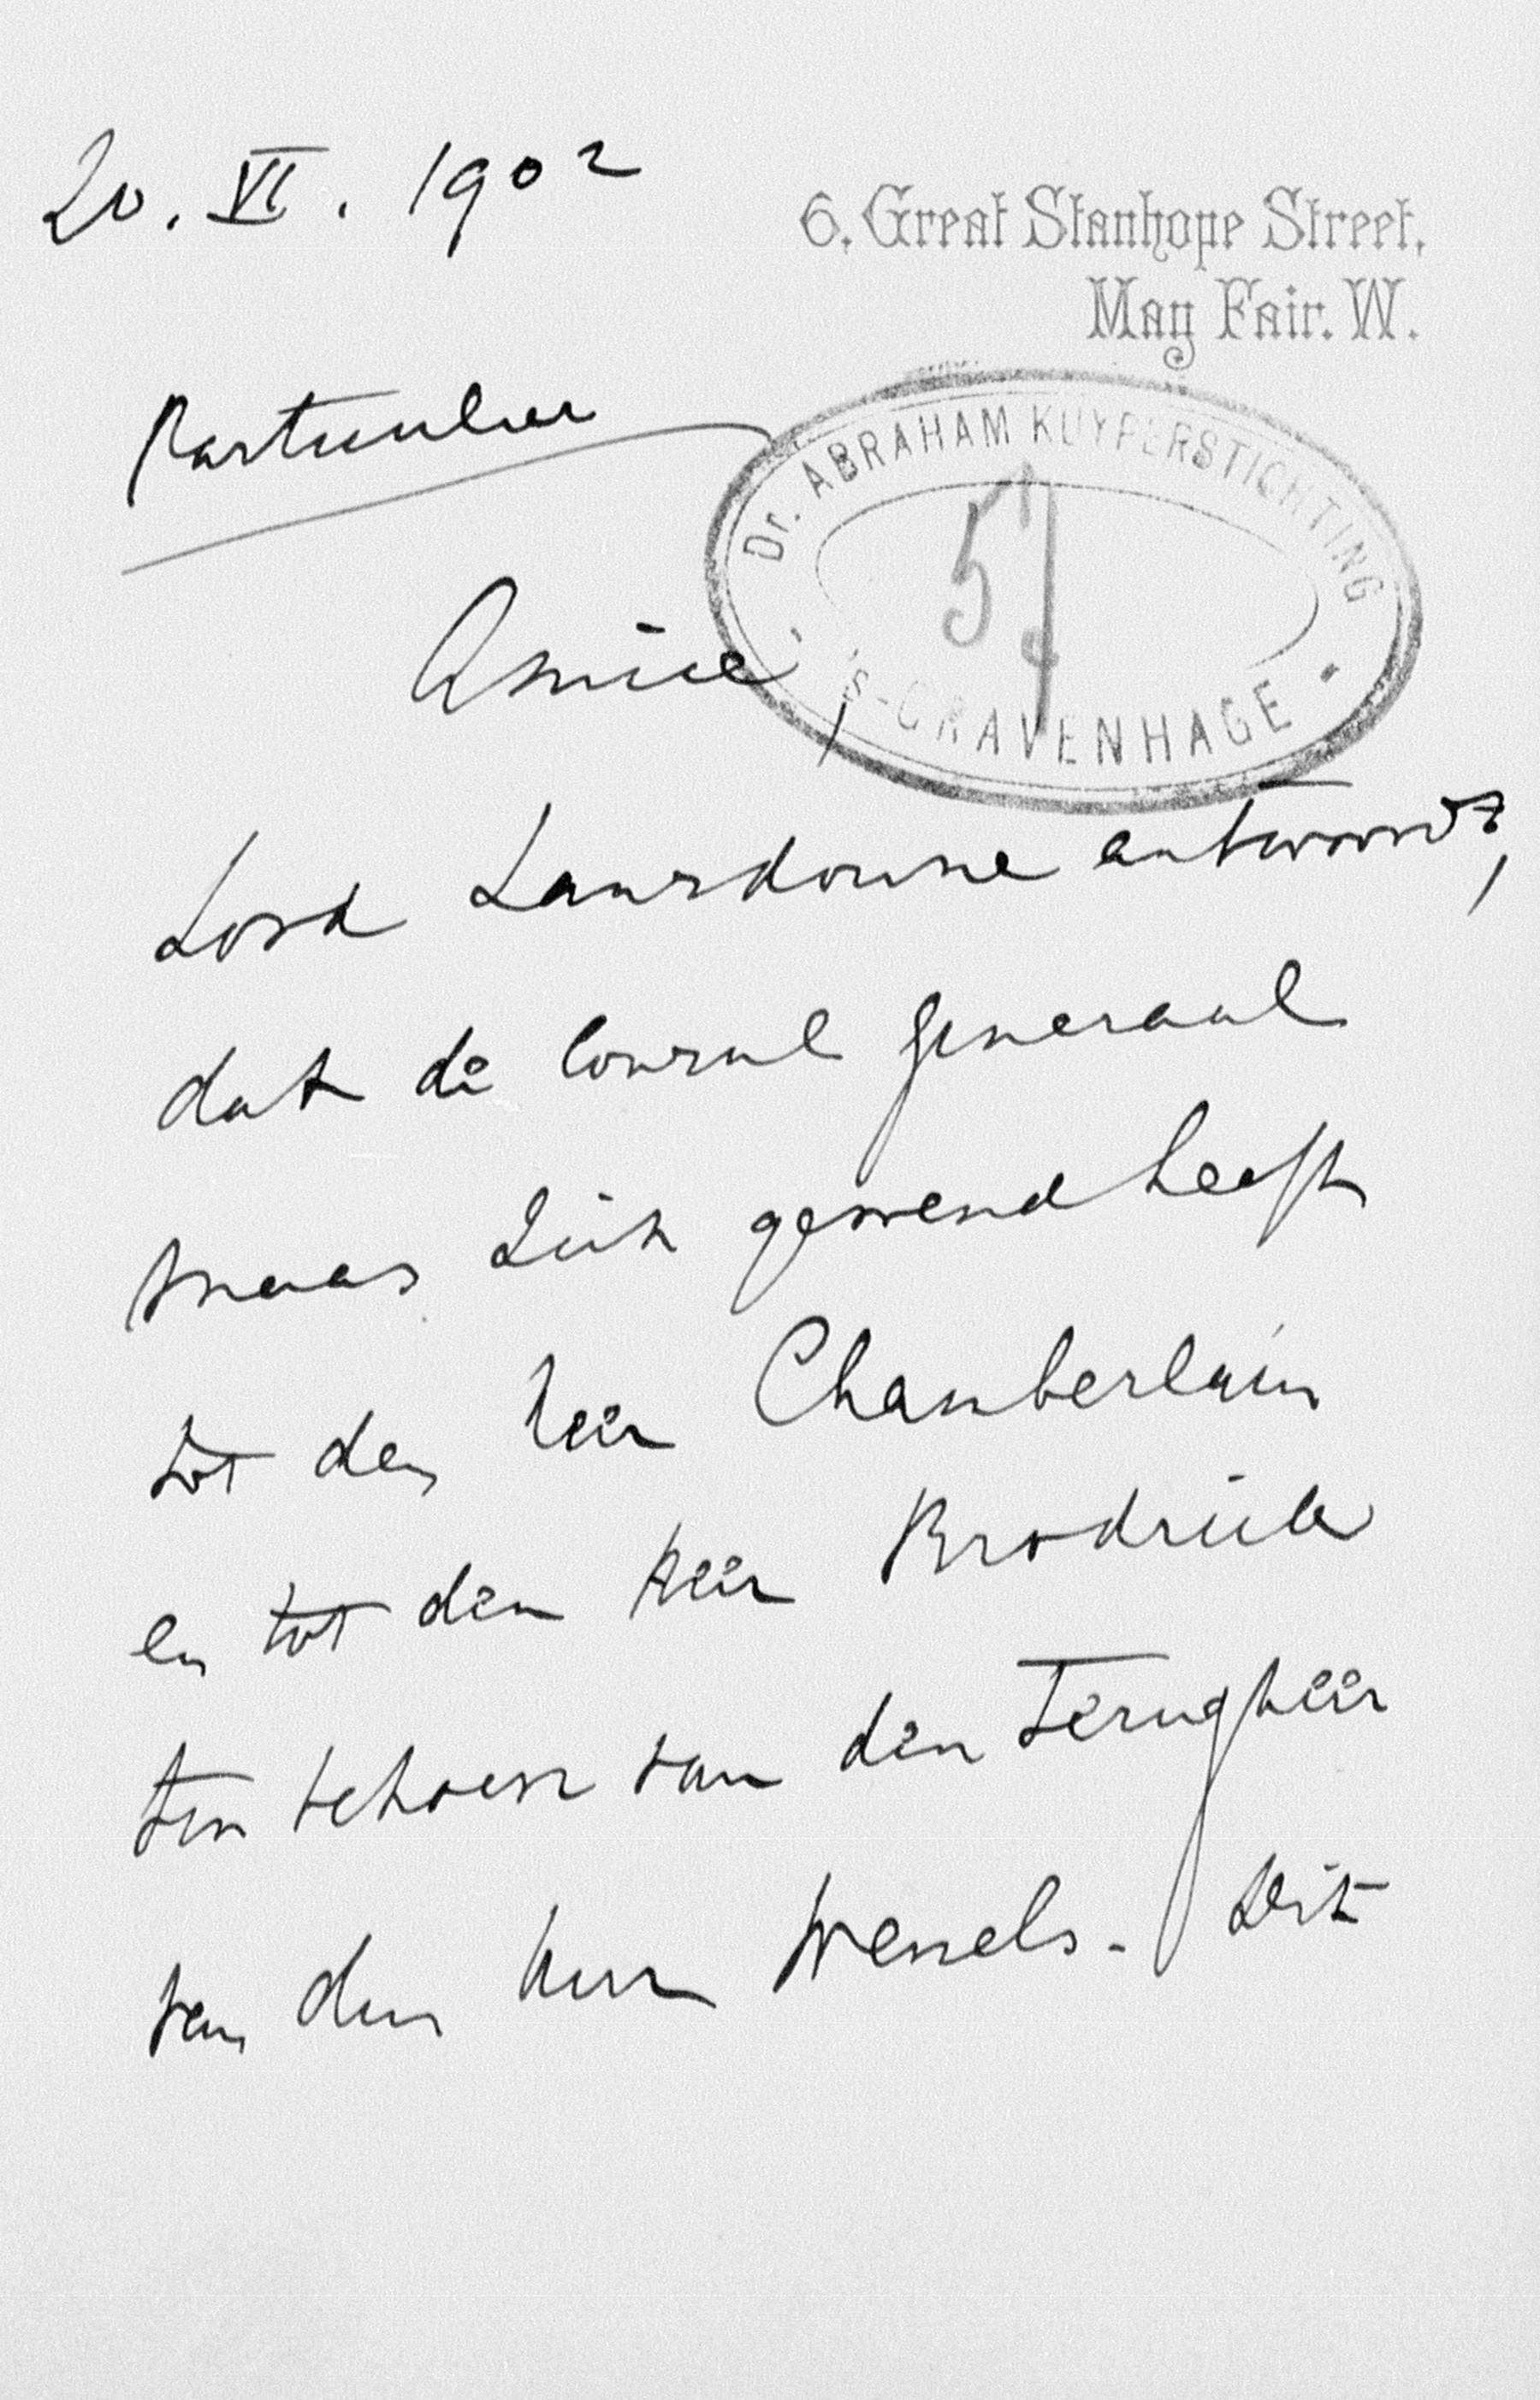 20. VI. 1902
6, Great Stanhope Street,
May Fair. W.
Particulier
Dr. ABRAHAM KUYPERSTICHTING
57
'S-GRAVENHAGE
Amice,
Lord Lansdowne antwoordt,
dat de Consul Generaal
Maas zich gewend heeft
tot den heer Chamberlain
en tot den heer Brodrick
ten behoeve van den terugkeer
van den heer Wessels. Dit